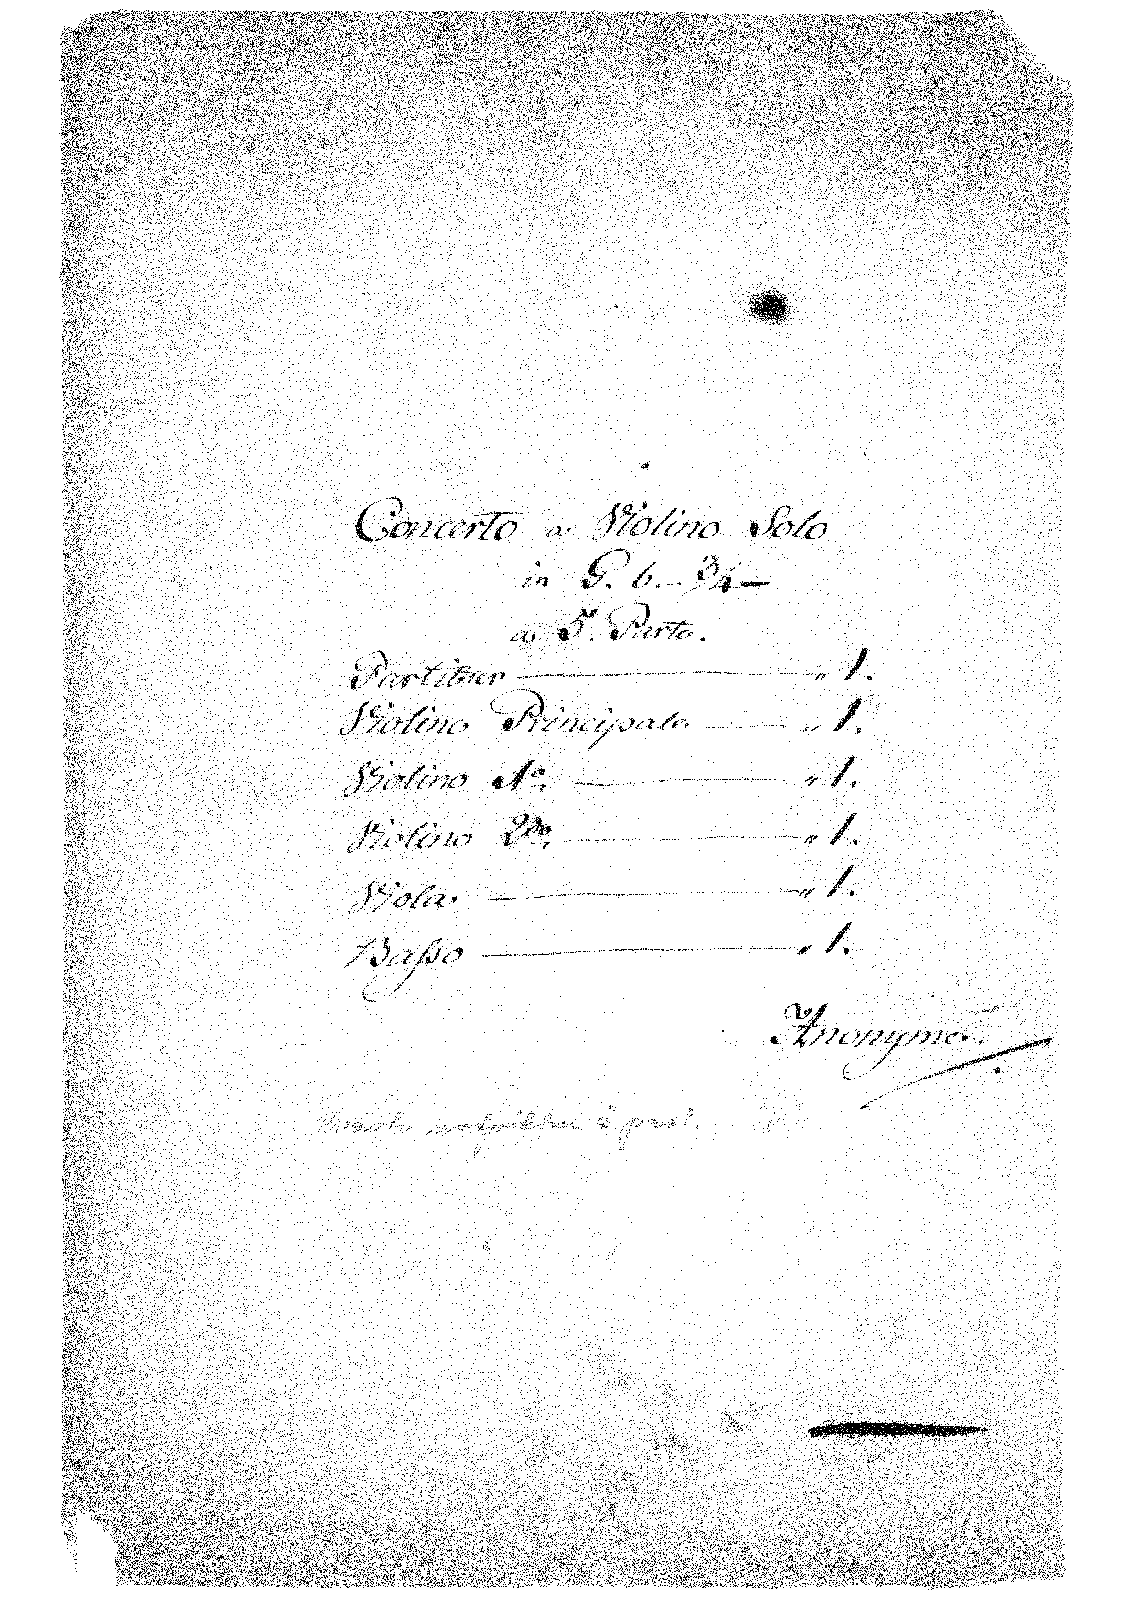 Concerto a Violino Solo
in G. b. 3/4
a 5. Parto.
Partituer „ 1.
Violino Principale „ 1.
Violino 1o. „ 1.
Violino 2do. „ 1.
Viola „ 1.
Baßo „ 1.
Anonyme.